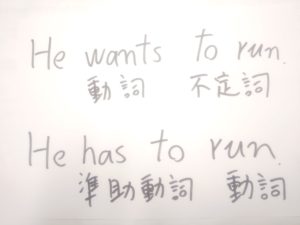 He wants to run.
動詞 不定詞
He has to run.
準助動詞 動詞